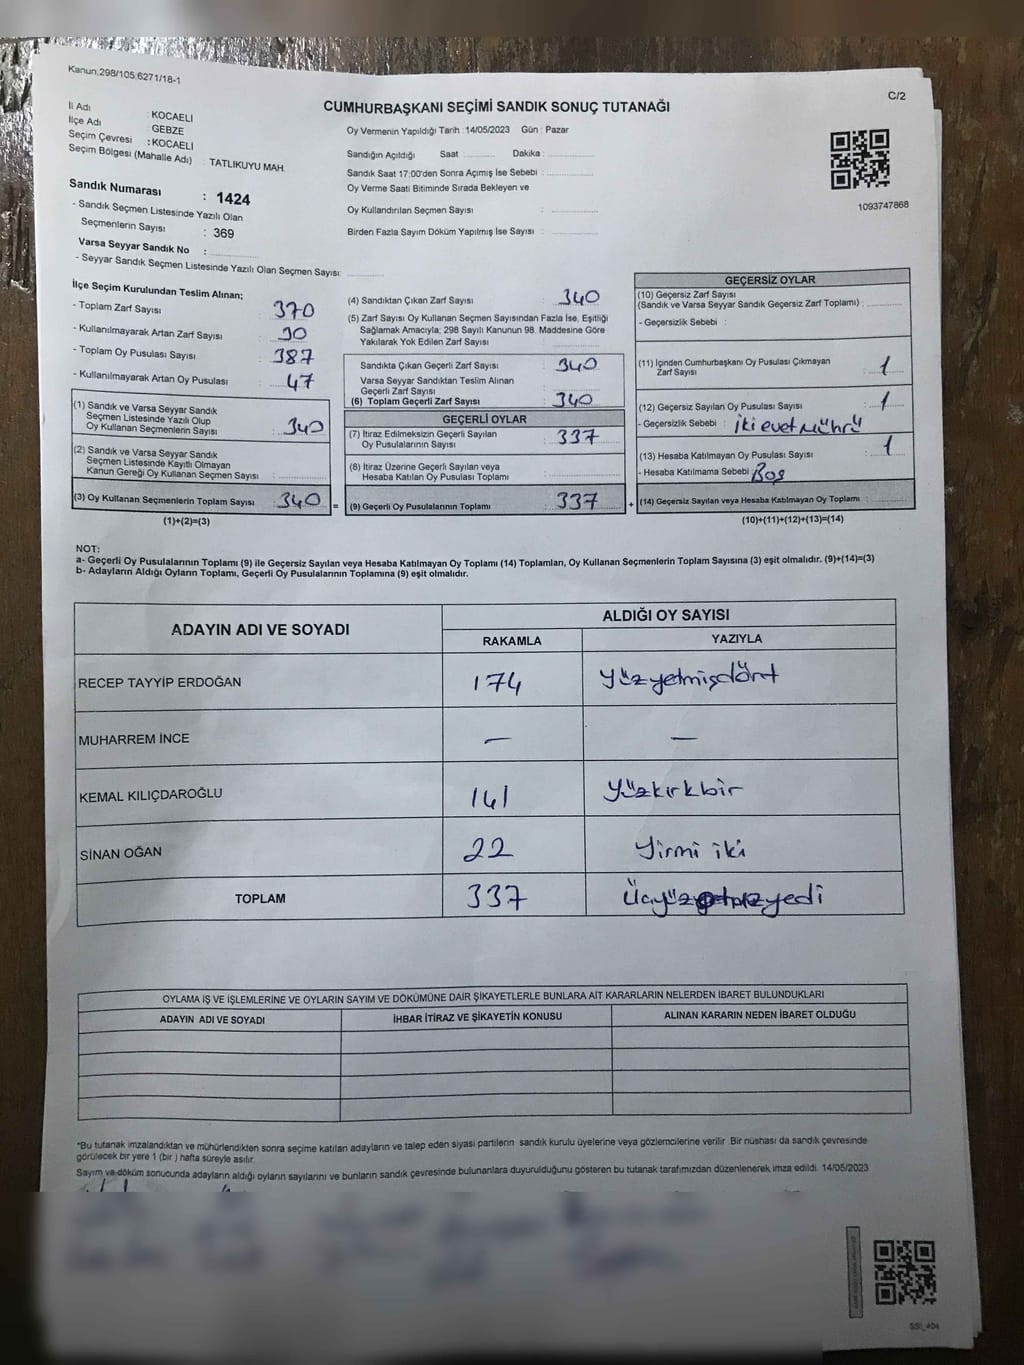 Kanun.298/105.6271/18-1
C/2
CUMHURBAŞKANI SEÇİMİ SANDIK SONUÇ TUTANAĞI
İl Adı : KOCAELİ
İlçe Adı GEBZE
Seçim Çevresi : KOCAELİ
Seçim Bölgesi (Mahalle Adı) : TATLIKUYU MAH.
Sandık Numarası : 1424
- Sandık Seçmen Listesinde Yazılı Olan
Seçmenlerin Sayısı : 369
Varsa Seyyar Sandık No :
- Seyyar Sandık Seçmen Listesinde Yazılı Olan Seçmen Sayısı:
Oy Vermenin Yapıldığı Tarih : 14/05/2023 Gün : Pazar
Sandığın Açıldığı Saat Dakika :
Sandık Saat 17:00'den Sonra Açımış İse Sebebi :
Oy Verme Saati Bitiminde Sırada Bekleyen ve
Oy Kullandırılan Seçmen Sayısı :
Birden Fazla Sayım Döküm Yapılmış İse Sayısı :
1093747868
İlçe Seçim Kurulundan Teslim Alınan;
- Toplam Zarf Sayısı : 370
- Kullanılmayarak Artan Zarf Sayısı : 30
- Toplam Oy Pusulası Sayısı : 387
- Kullanılmayarak Artan Oy Pusulası : 47
(1) Sandık ve Varsa Seyyar Sandık
Seçmen Listesinde Yazılı Olup
Oy Kullanan Seçmenlerin Sayısı : 340
(2) Sandık ve Varsa Seyyar Sandık
Seçmen Listesinde Kayıtlı Olmayan
Kanun Gereği Oy Kullanan Seçmen Sayısı :
(3) Oy Kullanan Seçmenlerin Toplam Sayısı : 340 =
(1)+(2)=(3)
(4) Sandıktan Çıkan Zarf Sayısı : 340
(5) Zarf Sayısı Oy Kullanan Seçmen Sayısından Fazla İse, Eşitliği
Sağlamak Amacıyla; 298 Sayılı Kanunun 98. Maddesine Göre
Yakılarak Yok Edilen Zarf Sayısı :
Sandıkta Çıkan Geçerli Zarf Sayısı : 340
Varsa Seyyar Sandıktan Teslim Alınan
Geçerli Zarf Sayısı :
(6) Toplam Geçerli Zarf Sayısı : 340
GEÇERLİ OYLAR
(7) İtiraz Edilmeksizin Geçerli Sayılan
Oy Pusulalarının Sayısı : 337
(8) İtiraz Üzerine Geçerli Sayılan veya
Hesaba Katılan Oy Pusulası Toplamı :
(9) Geçerli Oy Pusulalarının Toplamı : 337 +
GEÇERSİZ OYLAR
(10) Geçersiz Zarf Sayısı
(Sandık ve Varsa Seyyar Sandık Geçersiz Zarf Toplamı) :
- Geçersizlik Sebebi :
(11) İçinden Cumhurbaşkanı Oy Pusulası Çıkmayan
Zarf Sayısı : 1
(12) Geçersiz Sayılan Oy Pusulası Sayısı : 1
- Geçersizlik Sebebi : iki evet mührü
(13) Hesaba Katılmayan Oy Pusulası Sayısı : 1
- Hesaba Katılmama Sebebi : Boş
(14) Geçersiz Sayılan veya Hesaba Katılmayan Oy Toplamı :
(10)+(11)+(12)+(13)=(14)
NOT:
a- Geçerli Oy Pusulalarının Toplamı (9) ile Geçersiz Sayılan veya Hesaba Katılmayan Oy Toplamı (14) Toplamları, Oy Kullanan Seçmenlerin Toplam Sayısına (3) eşit olmalıdır. (9)+(14)=(3)
b- Adayların Aldığı Oyların Toplamı, Geçerli Oy Pusulalarının Toplamına (9) eşit olmalıdır.
ADAYIN ADI VE SOYADI ALDIĞI OY SAYISI
RAKAMLA YAZIYLA
RECEP TAYYİP ERDOĞAN 174 Yüzyetmişdört
MUHARREM İNCE — —
KEMAL KILIÇDAROĞLU 141 Yüzkırkbir
SİNAN OĞAN 22 Yirmi iki
TOPLAM 337 Üçyüzotuzyedi
OYLAMA İŞ VE İŞLEMLERİNE VE OYLARIN SAYIM VE DÖKÜMÜNE DAİR ŞİKAYETLERLE BUNLARA AİT KARARLARIN NELERDEN İBARET BULUNDUKLARI
ADAYIN ADI VE SOYADI İHBAR İTİRAZ VE ŞİKAYETİN KONUSU ALINAN KARARIN NEDEN İBARET OLDUĞU
*Bu tutanak imzalandıktan ve mühürlendikten sonra seçime katılan adayların ve talep eden siyasi partilerin sandık kurulu üyelerine veya gözlemcilerine verilir .Bir nüshası da sandık çevresinde
görülecek bir yere 1 (bir ) hafta süreyle asılır.
Sayım ve döküm sonucunda adayların aldığı oyların sayılarını ve bunların sandık çevresinde bulunanlara duyurulduğunu gösteren bu tutanak tarafımızdan düzenlenerek imza edildi. 14/05/2023
SSI_404